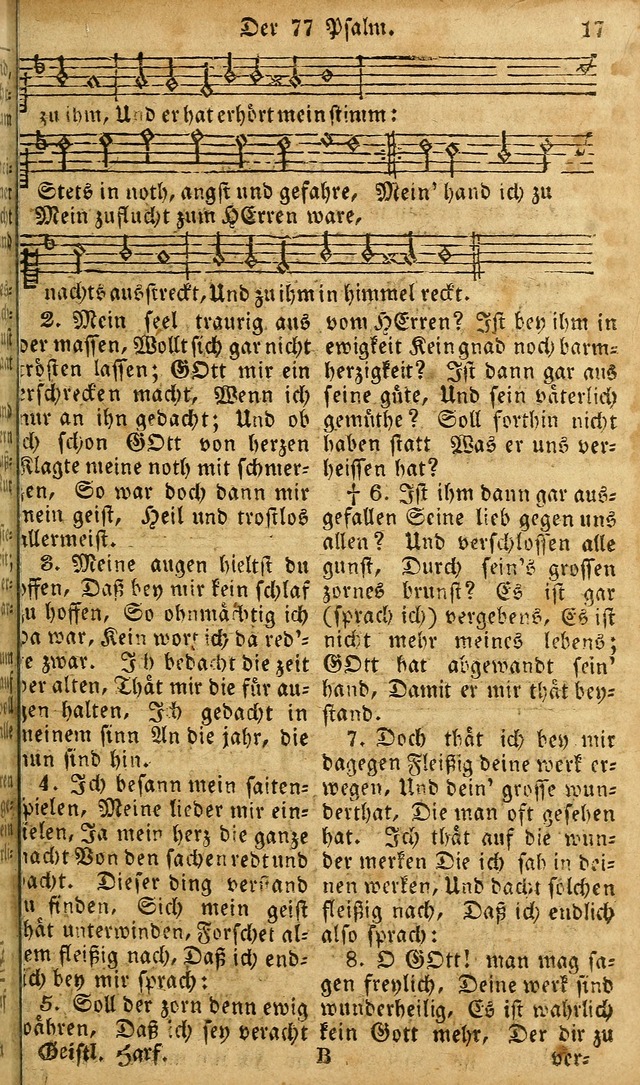 Der 77 Psalm. 17
zu ihm, Und er hat erhört mein stimm:
Stets in noth, angst und gefahre, Mein' hand ich zu
Mein zuflucht zum HErren ware,
nachts ausstreckt, Und zu ihm in himmel reckt.
2. Mein seel traurig aus
der massen, Wollt sich gar nicht
trösten lassen; GOtt mir ein
erschrecken macht, Wenn ich
nur an ihn gedacht; Und ob
ich schon GOtt von herzen
Klagte meine noth mit schmer-
zen, So war doch dann mir
mein geist, Heil und trostlos
allermeist.
3. Meine augen hieltst du
offen, Daß bey mir kein schlaf
zu hoffen, So ohnmächtig ich
da war, Kein wort ich da red'-
te zwar. Ich bedacht die zeit
der alten, Thät mir die für au-
gen halten, Ich gedacht in
meinem sinn An die jahr, die
nun sind hin.
4. Ich besann mein saiten-
spielen, Meine lieder mir ein-
fielen, Ja mein herz die ganze
nacht Von den sachen redt und
wacht. Dieser ding verstand
zu finden, Sich mein geist
thät unterwinden, Forschet al-
lem fleißig nach, Daß ich end-
lich bey mir sprach:
5. Soll der zorn denn ewig
währen, Daß ich sey veracht
Geistl. Harf.
vom HErren? Ist bey ihm in
ewigkeit Kein gnad noch barm-
herzigkeit? Ist dann gar aus
seine güte, Und sein väterlich
gemüthe? Soll forthin nicht
haben statt Was er uns ver-
heissen hat?
† 6. Ist ihm dann gar aus-
gefallen Seine lieb gegen uns
allen? Und verschlossen alle
gunst, Durch sein's grossen
zornes brunst? Es ist gar
(sprach ich) vergebens, Es ist
nicht mehr meines lebens;
GOtt hat abgewandt sein'
hand, Damit er mir thät bey-
stand.
7. Doch thät ich bey mir
dagegen Fleißig deine werk er-
wegen, Und dein' grosse wun-
derthat, Die man oft gesehen
hat. Ich thät auf die wun-
der merken Die ich sah in dei-
nen werken, Und dacht solchen
fleißig nach, Daß ich endlich
also sprach:
8. O GOtt! man mag sa-
gen freylich, Deine werk sind
wunderheilig, Es ist warlich
kein Gott mehr, Der dir zu
B ver-